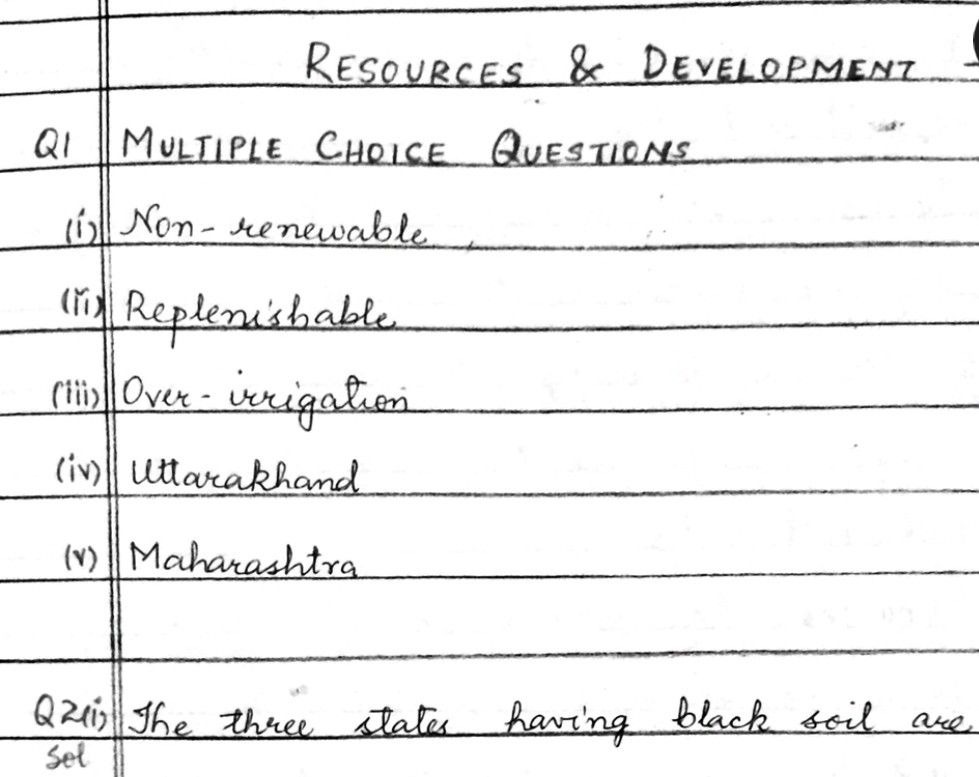 RESOURCES & DEVELOPMENT
Q1 MULTIPLE CHOICE QUESTIONS
(i) Non-renewable
(ii) Replenishable
(iii) Over-irrigation
(iv) Uttarakhand
(v) Maharashtra
Q2(i) The three states having black soil are
Sol